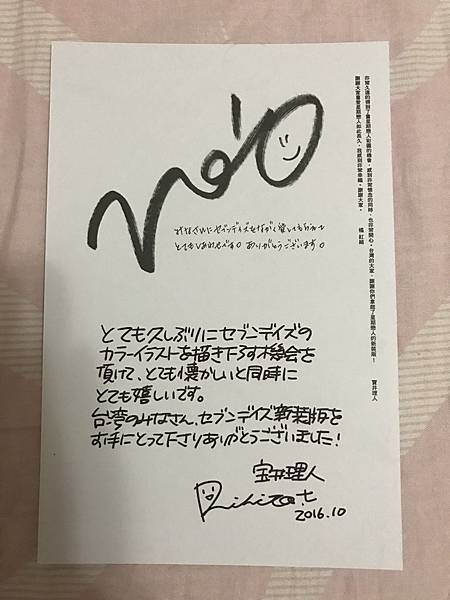 みなさんに セブンデイズをながく愛していただけて
とてもしあわせです。ありがとうございます。
とても久しぶりにセブンデイズの
カラーイラストを描き下ろす機会を
頂けて、とても懐かしいと同時に
とても嬉しいです。
台湾のみなさん、セブンデイズ新装版を
お手にとって下さりありがとうございました!
宝井理人
Rihito.t
2016.10
非常久違的得到了畫星期戀人彩圖的機會,感到非常懷念的同時,也非常開心。台灣的大家,謝謝你們拿起了星期戀人的新裝版! 寶井理人
謝謝大家喜愛星期戀人如此長久,我感到非常幸福。謝謝大家。 橘 紅緒